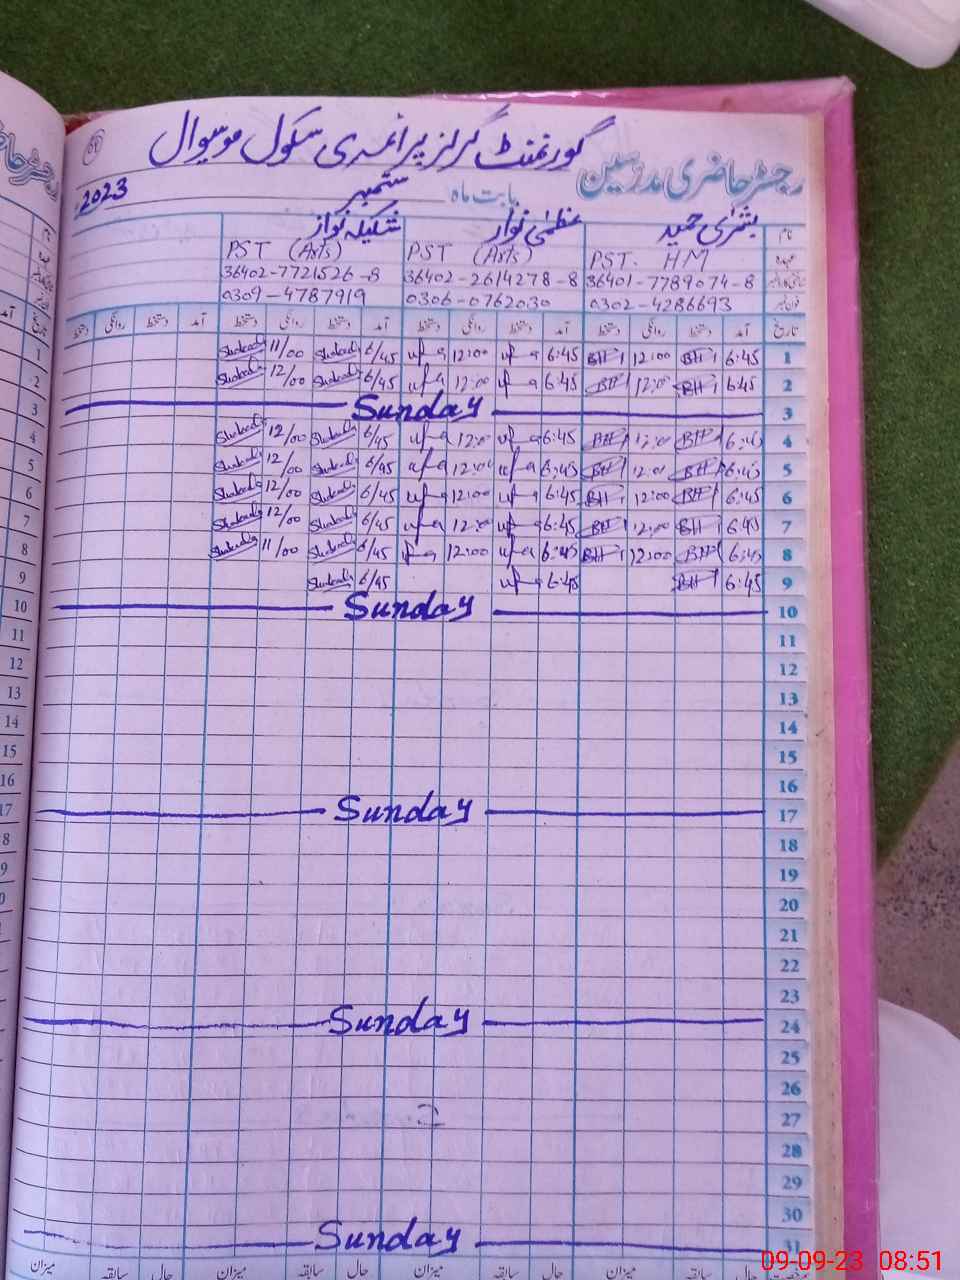 گورنمنٹ گرلز پرائمری سکول موسیوال
رجسٹر حاضری مدرسین
بابت ماہ ستمبر 2023
نام بشریٰ حمید عظمیٰ نواز شکیلہ نواز
PST. HM PST (Arts) PST (Arts)
36401-7789074-8 36402-2614278-8 36402-7721526-8
0302-4286693 0306-0762030 0309-4787919
تاریخ آمد دستخط روانگی دستخط آمد دستخط روانگی دستخط آمد دستخط روانگی دستخط آمد دستخط روانگی دستخط
1 6:45 BH 12:00 BH 6:45 12:00 6/45 Shakeela 11/00 Shakeela
2 6:45 BH 12:00 BH 6:45 12:00 6/45 Shakeela 12/00 Shakeela
3 Sunday
4 6:45 BH 12:00 BH 6:45 12:00 6/45 Shakeela 12/00 Shakeela
5 6:45 BH 12:00 BH 6:45 12:00 6/45 Shakeela 12/00 Shakeela
6 6:45 BH 12:00 BH 6:45 12:00 6/45 Shakeela 12/00 Shakeela
7 6:45 BH 12:00 BH 6:45 12:00 6/45 Shakeela 12/00 Shakeela
8 6:45 BH 12:00 BH 6:45 12:00 6/45 Shakeela 11/00 Shakeela
9 6:45 BH 6:45 6/45 Shakeela
10 Sunday
11
12
13
14
15
16
17 Sunday
18
19
20
21
22
23
24 Sunday
25
26
27
28
29
30
31 Sunday
حال سابقہ میزان حال سابقہ میزان حال سابقہ میزان حال سابقہ میزان
09-09-23 08:51